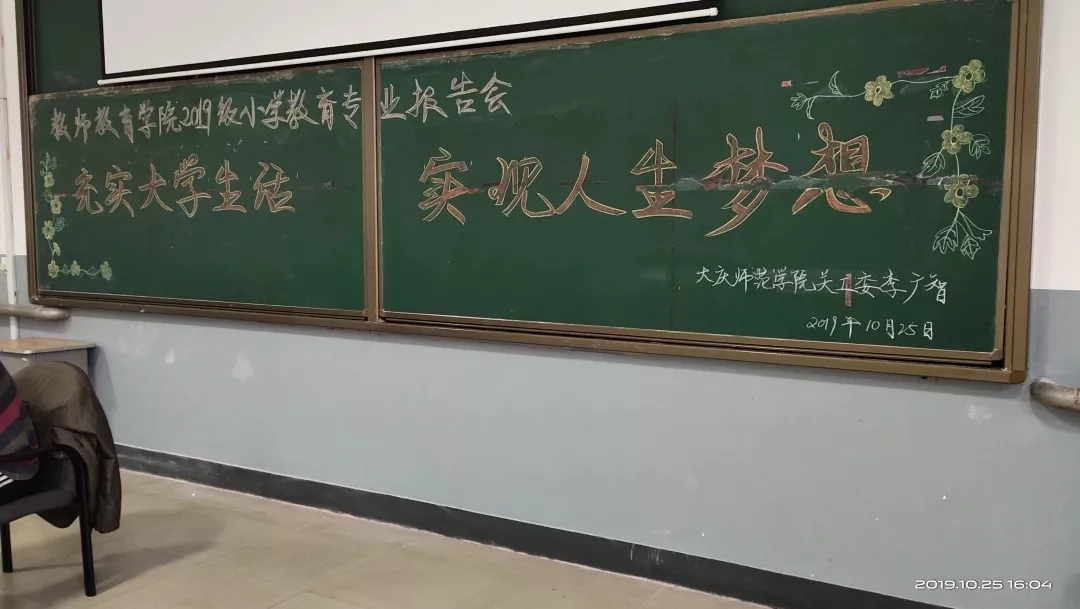 教师教育学院2019级小学教育专业报告会
充实大学生活 实现人生梦想
大庆师范学院关工委李广智
2019年10月25日
2019.10.25 16:04